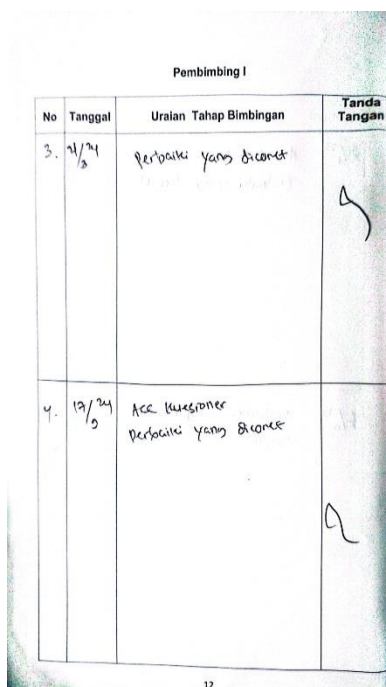 Pembimbing I
No Tanggal Uraian Tahap Bimbingan Tanda Tangan
3. Perbaiki yang dicoret
4. 17/24 Acc Kuesioner
9
Perbaiki yang dicoret
12